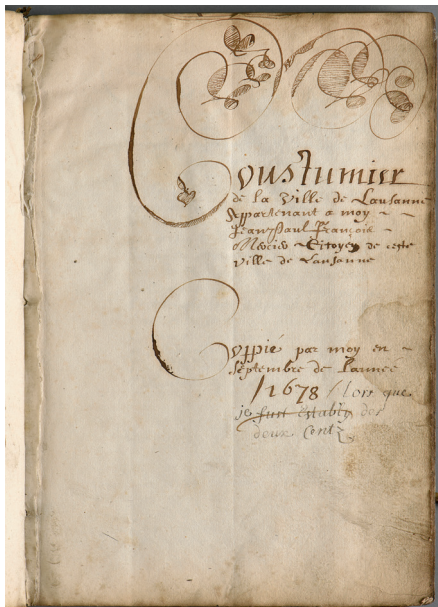 Coustumier
de la Ville de Lausanne
Appartenant a moy
Jean Paul François
Citoyen de ceste
Ville de Lausanne
Coppié par moy en
Septembre de Lannee
1678 / Lors que
je fust establÿ des
deux Cent